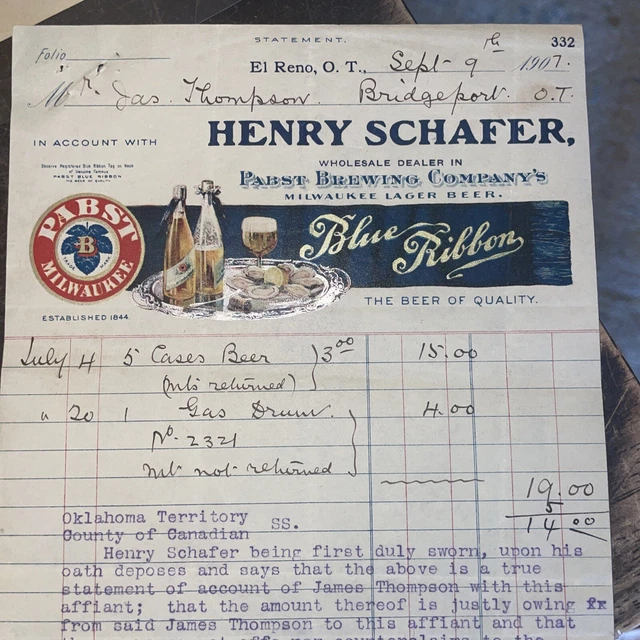 STATEMENT.
332
Folio
El Reno, O. T., Sept 9th 1907.
Mr. Jas. Thompson. Bridgeport. O.T.
IN ACCOUNT WITH
HENRY SCHAFER,
Observe Registered Blue Ribbon Tag on Neck
of Genuine Famous
PABST BLUE RIBBON
THE BEER OF QUALITY.
WHOLESALE DEALER IN
PABST BREWING COMPANY'S
MILWAUKEE LAGER BEER.
PABST
B
MILWAUKEE
Blue Ribbon
ESTABLISHED 1844.
THE BEER OF QUALITY.
July 4 5 Cases Beer 3.00 15.00
(mts returned)
" 20 1 Gas Drum. 4.00
No. 2321
mt not returned
19.00
5
14 00
Oklahoma Territory
SS.
County of Canadian
Henry Schafer being first duly sworn, upon his
oath deposes and says that the above is a true
statement of account of James Thompson with this
affiant; that the amount thereof is justly owing fr
from said James Thompson to this affiant and that